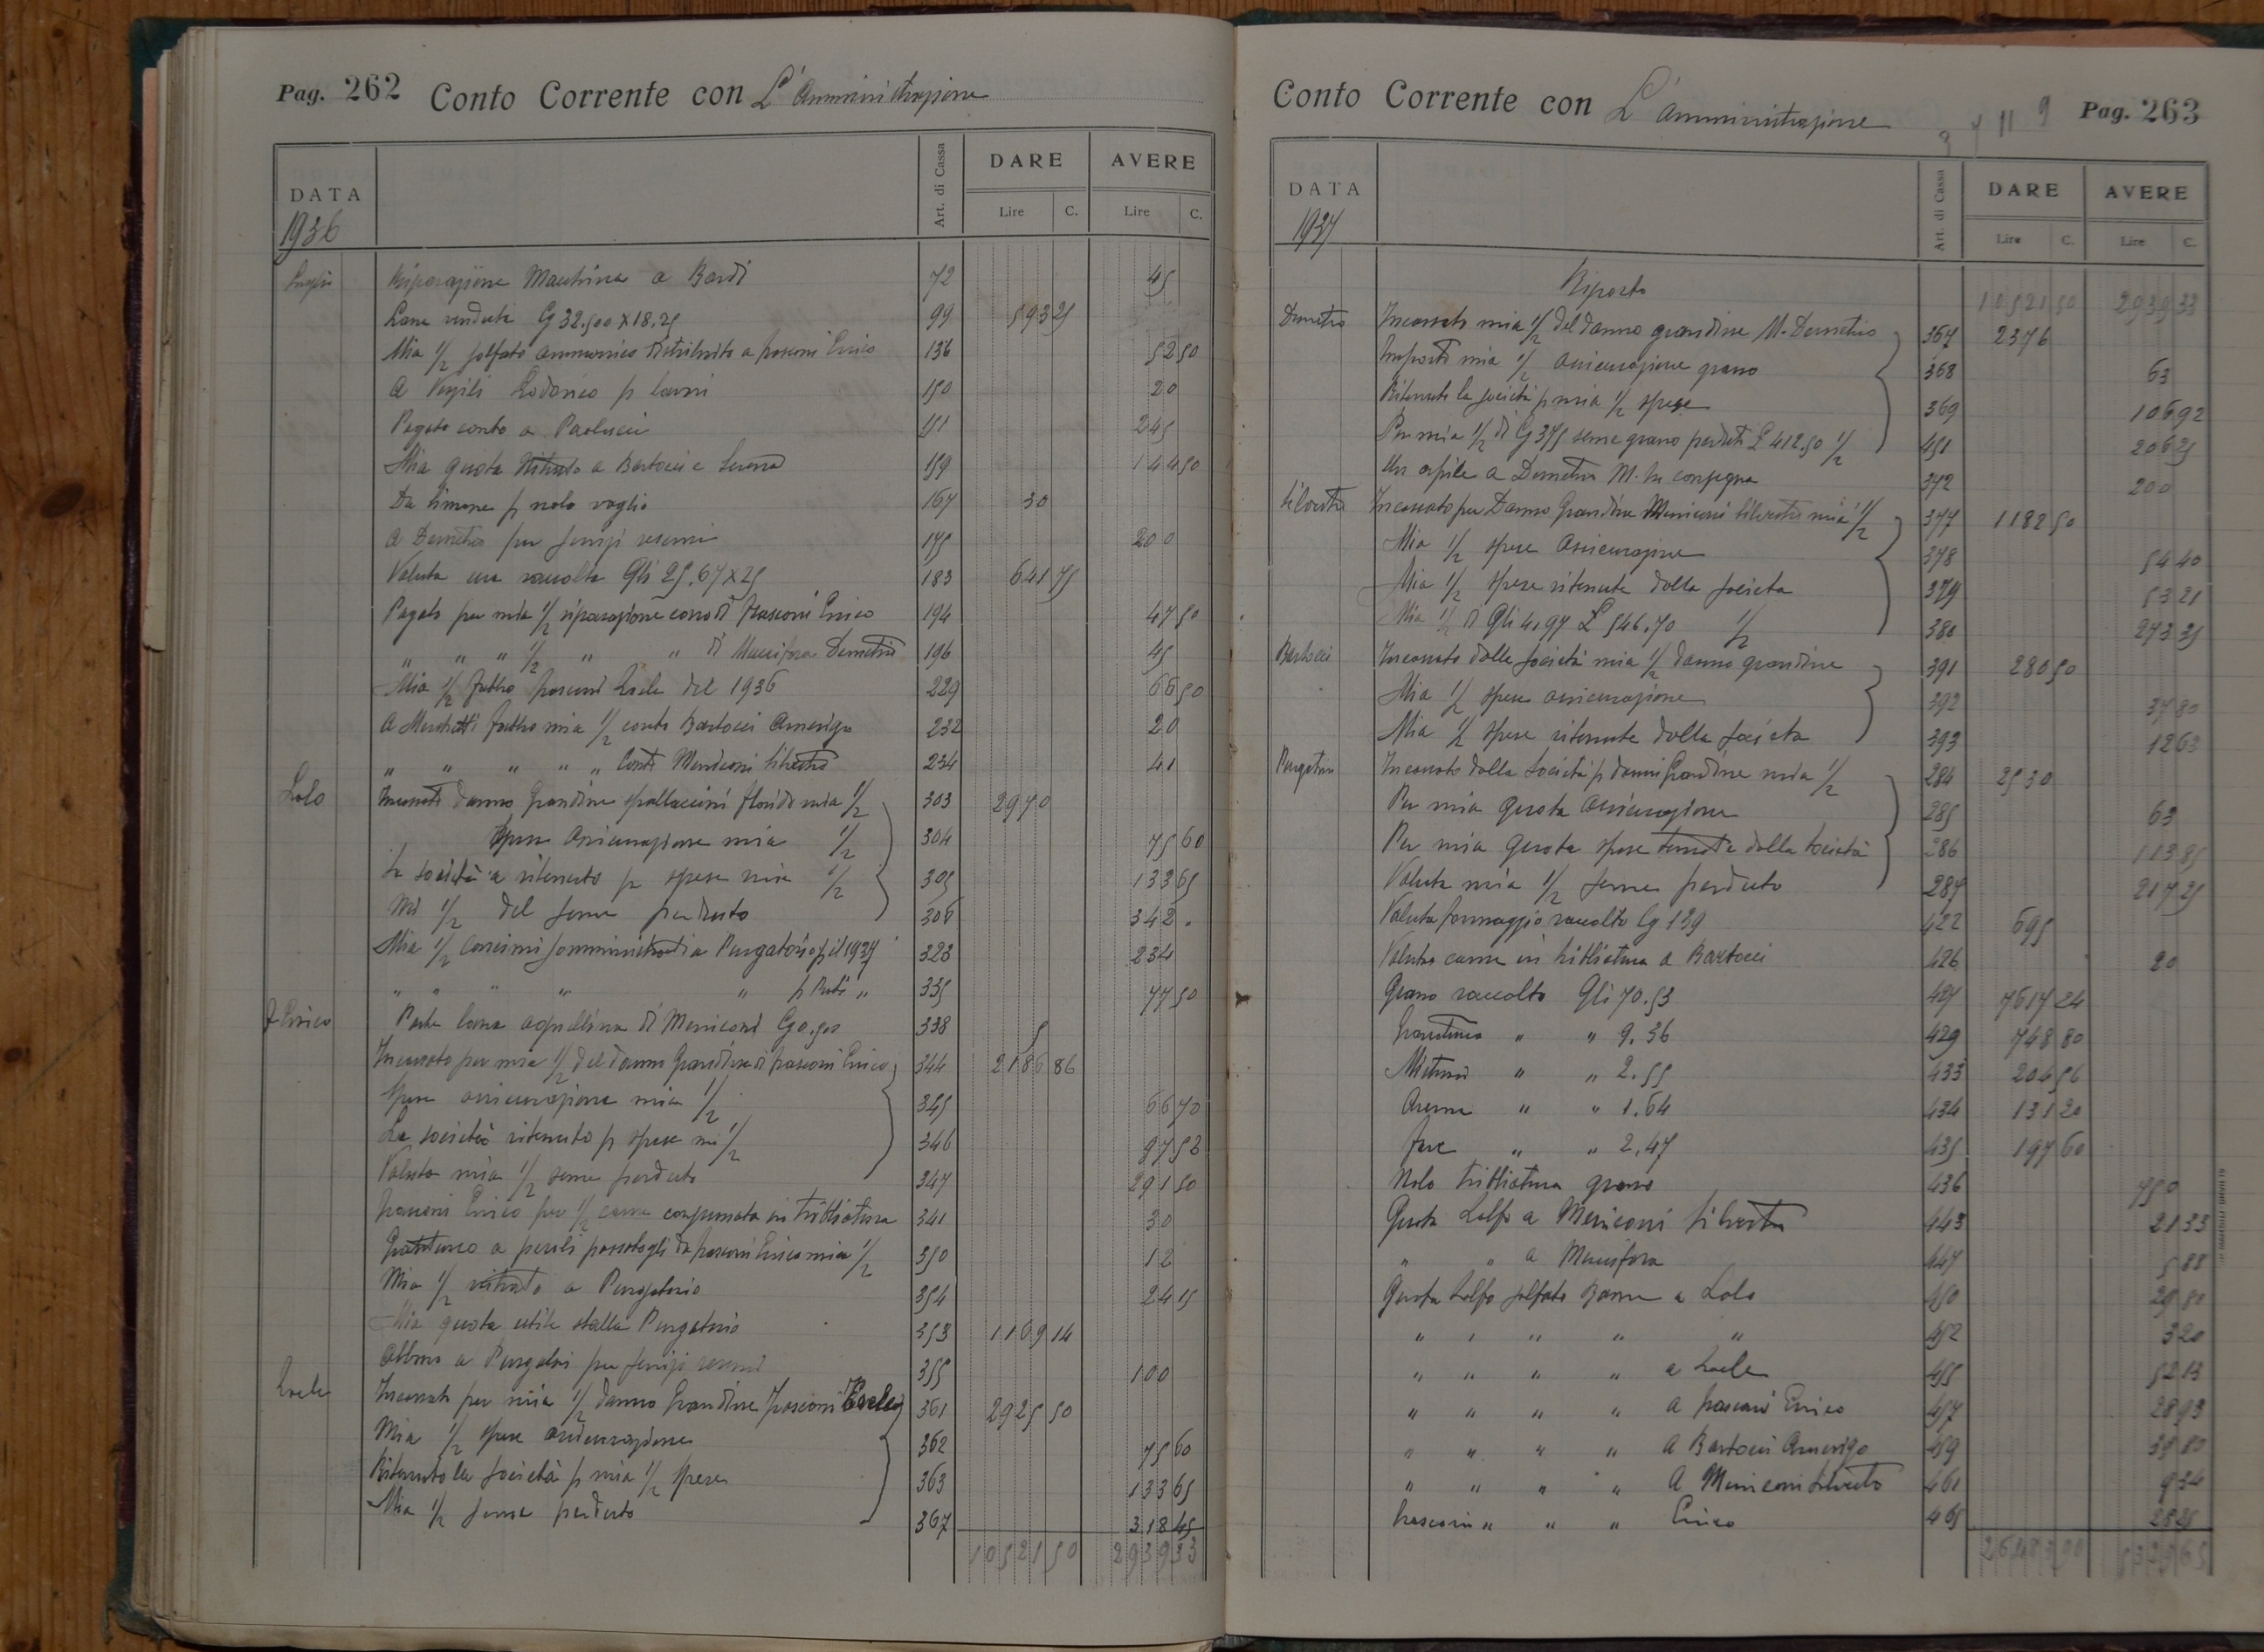 Pag. 262 Conto Corrente con L'Amministrazione
DATA Art. di Cassa DARE AVERE
Lire C. Lire C.
1936
Luglio Riparazione Macchina a Bardi 72 45
Lana venduta Cg 32.500 X 18.25 99 593 25
Mia 1/2 solfato ammonico distribuito a Frasconi Enrico 136 52 50
A Vergili Lodovico p lavori 150 20
Pagato conto a Paolucci 151 245
Mia quota Nitrato a Bartocci e 159 144 50
Da Simone p nolo vaglio 167 30
A Demetrio per servizi resemi 175 200
Valuta uva raccolta Qli 25.67 X 25 183 641 75
Pagato per mia 1/2 riparazione carro di Frasconi Enrico 194 47 50
" " " 1/2 " " di Muccifora Demetrio 196 45
Mia 1/2 Frasconi Ersele del 1936 229 66 50
A Marchetti mia 1/2 conto Bartocci Amerigo 232 20
" " " " " Conto Meniconi Silvestro 234 41
Lolo Incassato danno Grandine Spallaccini Florido mia 1/2 303 2970
Spese Assicurazione mia 1/2 304 75 60
La società a ritenuto p spese mia 1/2 305 133 65
Mi 1/2 del seme perduto 306 342 .
Mia 1/2 Concimi somministrati a Purgatorio p il 1937 323 234
" " " " " p " 335 77 50
F Enrico Parte lana agnellina di Meniconi Cg 0.500 338 5
Incassato per mia 1/2 del danno Grandine di Frasconi Enrico 344 2186 86
Spese assicurazione mia 1/2 345 66 70
La società ritenuto p spese mi 1/2 346 97 52
Valuta mia 1/2 seme perduto 347 291 50
Frasconi Enrico per 1/2 carne consumata in tribbiatura 341 30
Granturco a passatogli da Frasconi Enrico mia 1/2 350 12
Mia 1/2 nitrato a Purgatorio 354 24 15
Mia quota utile stalla Purgatorio 353 1169 14
Abbuo a Purgatori per servizi resemi 355 100
Ersele Incassato per mia 1/2 danno Grandine Frasconi Ersele 361 2925 50
Mia 1/2 spese assicurazione 362 75 60
Ritenuto la società p mia 1/2 spese 363 133 65
Mia 1/2 seme perduto 367 318 45
10521 50 2939 33
Conto Corrente con L'Amministrazione Pag. 263
DATA Art. di Cassa DARE AVERE
Lire C. Lire C.
1937
Riporto 10521 50 2939 33
Demetrio Incassato mia 1/2 del danno grandine M. Demetrio 367 2376
Importo mia 1/2 assicurazione grano 368 63
Ritenuto la società p mia 1/2 spese 369 106 92
Per mia 1/2 di Cg 375 seme grano perduto £ 412.50 1/2 451 206 25
Un apile a Demetrio M. in consegna 372 200
Silvestro Incassato per Danno Grandine Meniconi Silvestro mia 1/2 377 1182 50
Mia 1/2 spese Assicurazione 378 54 40
Mia 1/2 spese ritenute dalla Società 379 53 21
Mia 1/2 di Qli 4.97 £ 546.70 1/2 380 273 35
Bartocci Incassato dalla Società mia 1/2 danno grandine 391 280 50
Mia 1/2 spese assicurazione 392 37 80
Mia 1/2 spese ritenute dalla Società 393 12 63
Purgatorio Incassato dalla Società p danni Grandine mia 1/2 284 2530
Per mia quota Assicurazione 285 63
Per mia quota spese tenute dalla Società 286 113 85
Valuta mia 1/2 seme perduto 287 217 25
Valuta formaggio raccolto Cg 139 422 695
Valuta carne in tribbiatura a Bartocci 426 20
Grano raccolto Qli 70.53 427 7617 24
Granturco " " 9.36 429 748 80
Mistura " " 2.55 433 204 56
Avena " " 1.64 434 131 20
Fave " " 2.47 435 197 60
Nolo tribbiatura grano 436 750
Quota Zolfo a Meniconi Silvestro 443 21 33
" " a Muccifora 447 5 88
Quota Zolfo solfato Rame a Lolo 450 29 80
" " " " " 452 3 20
" " " " a Ersele 455 52 13
" " " " a Frasconi Enrico 457 28 93
" " " " A Bartocci Amerigo 459 39 80
" " " " A Meniconi Silvestro 461 9 34
Frasconi " " " Enrico 465 28 25